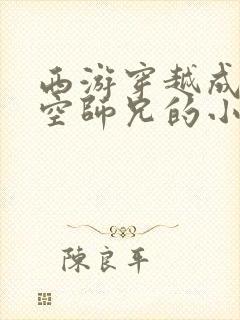 西游穿越成
空師兄的小
陳良平